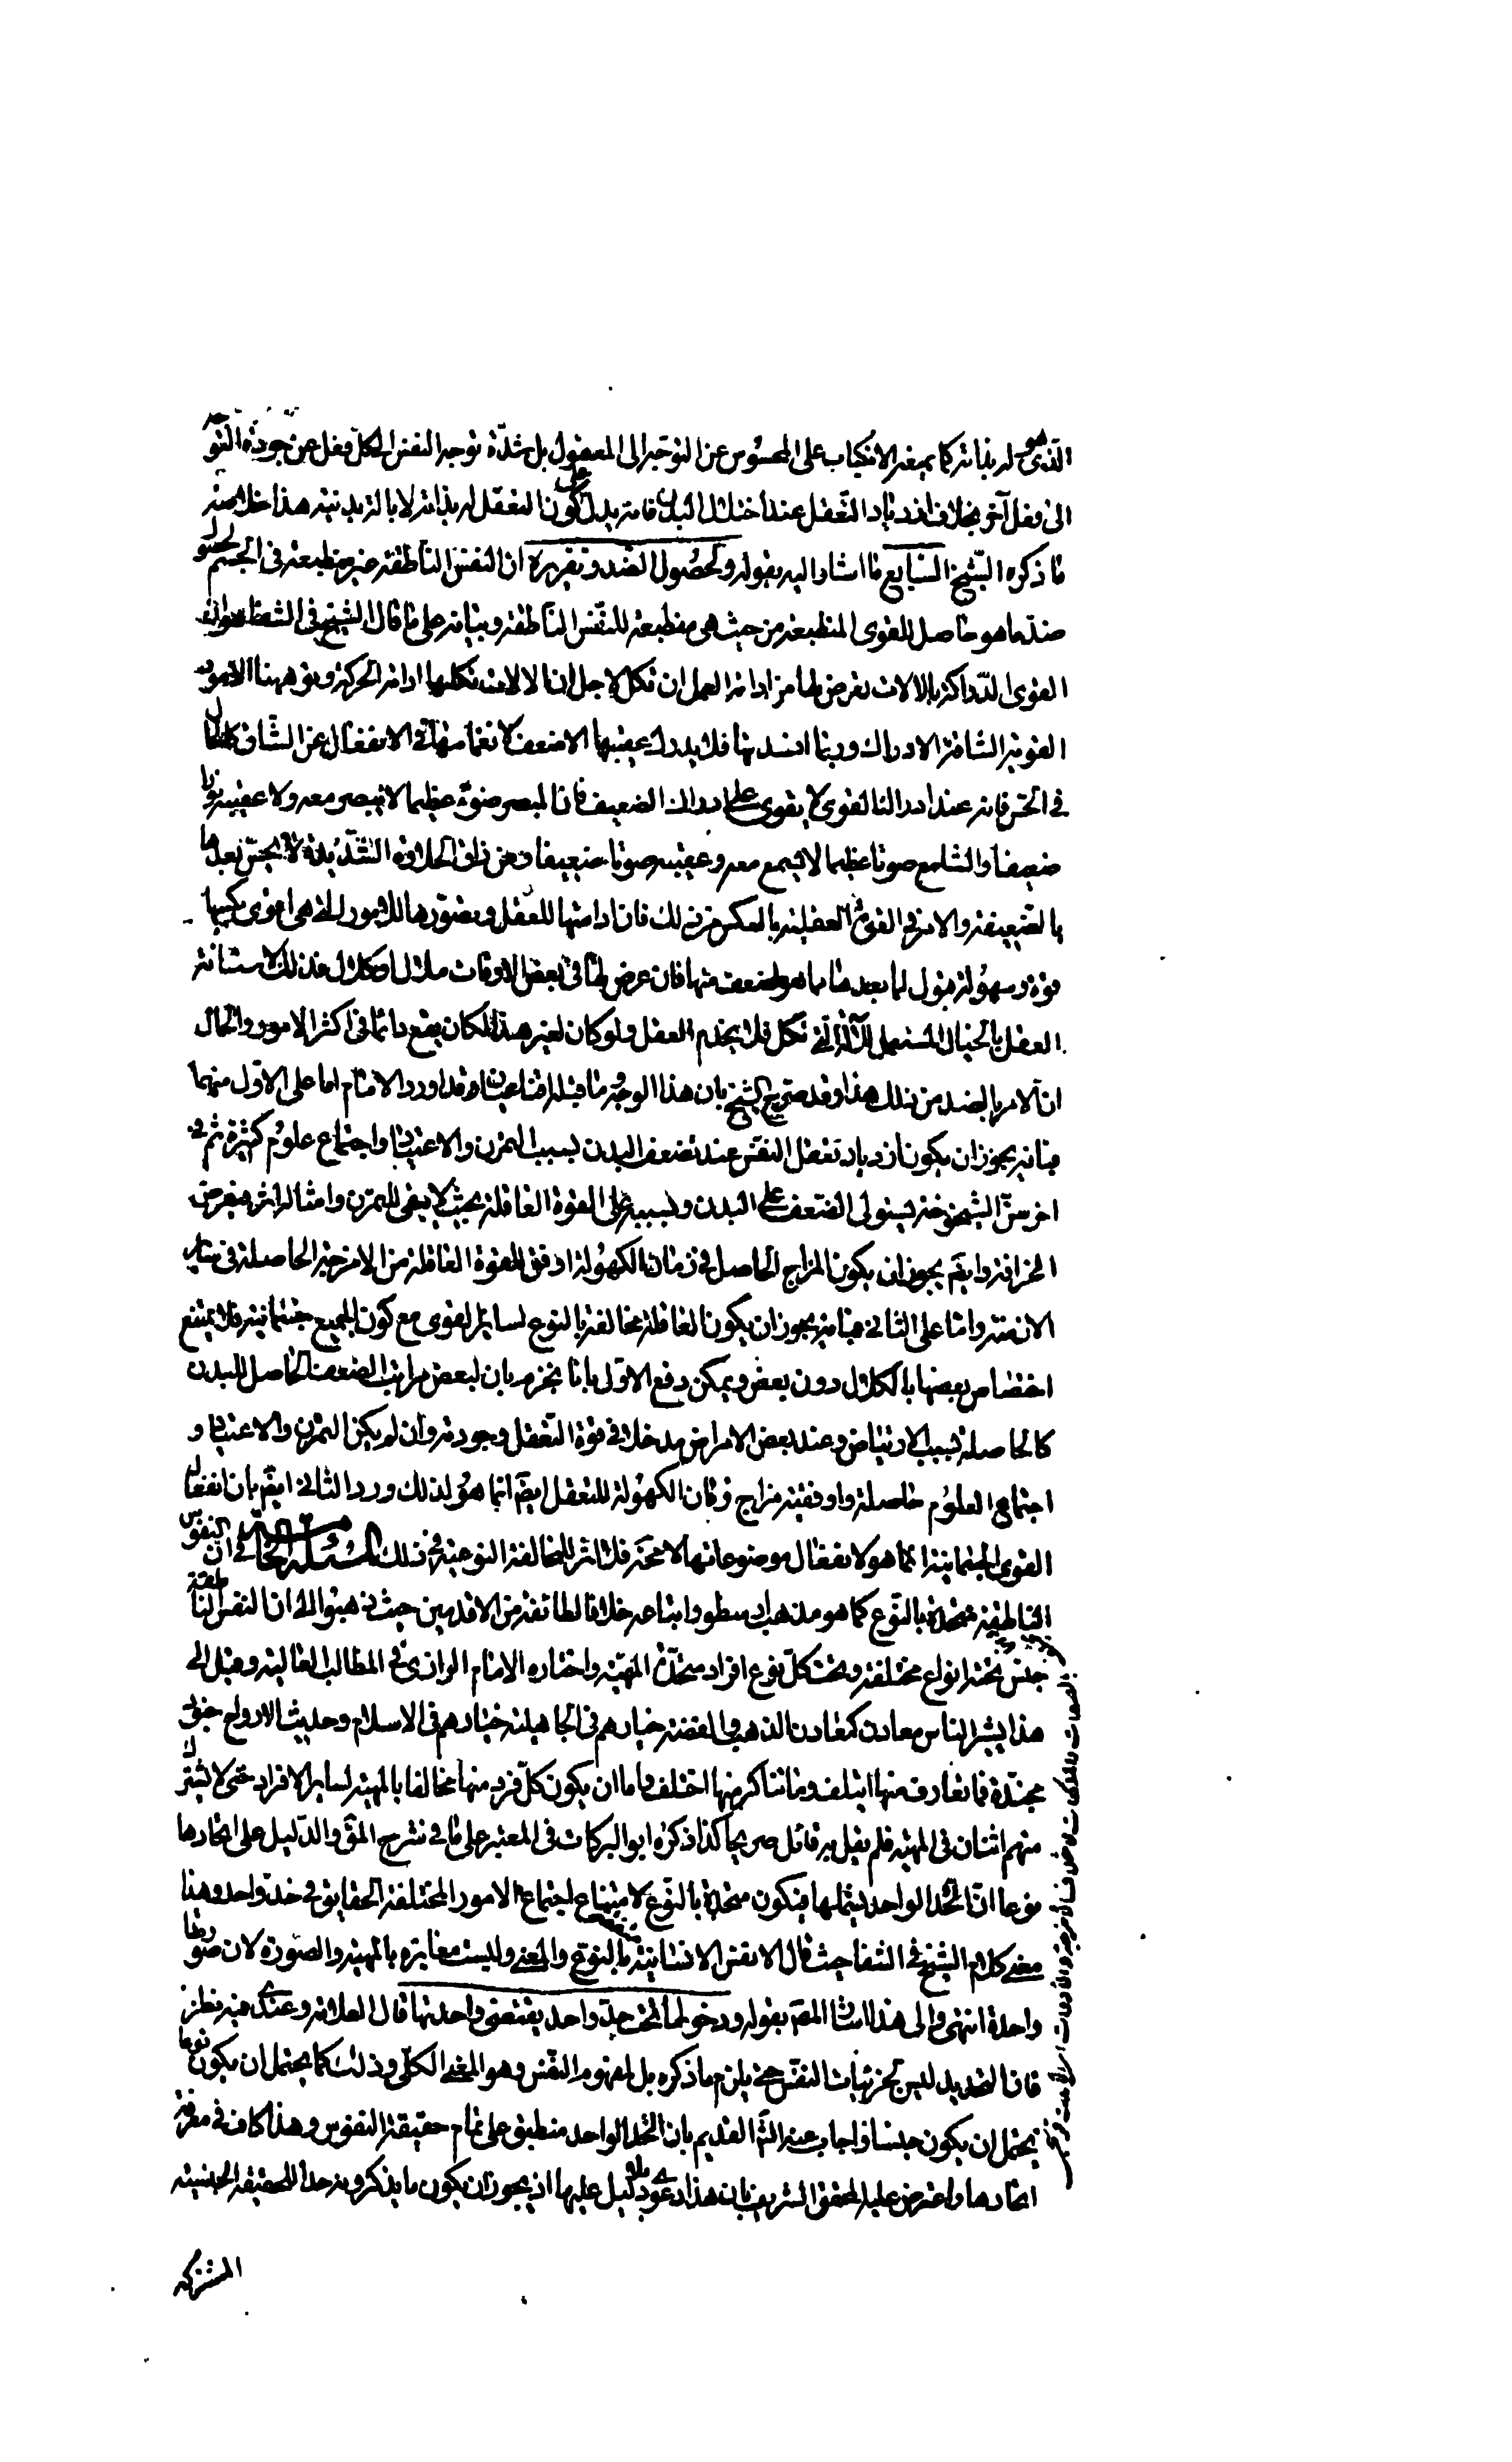 الذى هو له بذاته كما يمنع الانكباب على المحسوس عن التوجه الى المعقول بل شدة توجه النفس الى كل فعل عن جودة التوجه
الى فعل آخر بخلاف ازدياد التعقل عند اختلال البدن فانه يدل على كون التعقل له بذاته لا بالة بدنية هذا خلاصة
ما ذكره الشيخ السابع ما اشار اليه بقوله ولحصول الضد وتقريره ان النفس الناطقة غير منطبعة فى الجسم لحصول
ضد ما هو حاصل للقوى المنطبعة من حيث هى منطبعة للنفس الناطقة وبيانه على ما قال الشيخ فى الشفا هو ان
القوى الدراكة بالالات يعرض لها من ادامة العمل ان تكل لاجل ان الالات تكلها ادامة الحركة وتوهنها الامور
القوية الشاقة الادراك وربما افسدتها فلا يدرك عقيبها الاضعف لانغماسها فى الانفعال عن الشاق كالحال
فى الحس فانه عند ادراك القوى لا يقوى على ادراك الضعيف فان المبصر ضوءا عظيما لا يبصر معه ولا عقيبه نورا
ضعيفا والسامع صوتا عظيما لا يسمع معه وعقيبه صوتا ضعيفا ومن ذاق الحلاوة الشديدة لا يحس بعدها
بالضعيفة والامر فى القوة العقلية بالعكس من ذلك فان ادامتها للعقل وتصورها للامور التى هى اقوى يكسبها
قوة وسهولة قبول لما بعدها مما هو اضعف منها فان عرض لها فى بعض الاوقات ملال او كلال فذلك لاستعانة
العقل بالخيال المستعمل للالة التى تكل فلا يخدم العقل ولو كان لغير هذا لكان يقع دائما فى اكثر الامور والحال
ان الامر بالضد من ذلك هذا وقد صرح الشيخ بان هذا الوجه وما قبله اقناعيان وقد اورد الامام اما على الاول منهما
فبانه يجوز ان يكون ازدياد تعقل النفس عند ضعف البدن بسبب التمرن والاعتياد واجتماع علوم كثيرة ثم فى
اخر سن الشيخوخة يستولى الضعف على البدن وبسببه على القوة العاقلة بحيث لا يبقى للتمرن وامثاله اثر فيعرض
الخرافة وايضم يجوز ان يكون المزاج الحاصل فى زمان الكهولة اوفق للقوة العاقلة من الامزجة الحاصلة فى سائر
الازمنة واما على الثانى فبانه يجوز ان يكون العاقلة مخالفة بالنوع لسائر القوى مع كون الجميع جسمانية فلا يمتنع
اختصاص بعضها بالكلال دون بعض ويمكن دفع الاول بانا نجزم بان لبعض مراتب الضعف الحاصل للبدن
كالحاصلة بسبب الارتياض وعند بعض الامراض مدخلا فى قوة التعقل وجودته وان لم يكن التمرن والاعتياد و
اجتماع العلوم حاصلة واوفقية مزاج زمان الكهولة للتعقل ايضم انما هو لذلك ورد الثانى ايضم بان انفعال
القوى الجسمانية انما هو لانفعال موضوعاتها لا محة فلا اثر للمخالفة النوعية فى ذلك المسئلة فى ان النفوس
الناطقة متحدة بالنوع كما هو مذهب ارسطو واتباعه خلافا لطائفة من الاقدمين حيث ذهبوا الى ان النفس الناطقة
جنس تحته انواع مختلفة وتحت كل نوع افراد متحدة المهية واختاره الامام الرازى فى المطالب العالية وقيل الى
هذا يشير الناس معادن كمعادن الذهب والفضة خيارهم فى الجاهلية خيارهم فى الاسلام وحديث الارواح جنود
مجندة فما تعارف منها ائتلف وما تناكر منها اختلف واما ان يكون كل فرد منها مخالفا بالمهية لسائر الافراد حتى لا يشترك
منهم اثنان فى المهية فلم يقل به قائل صريحا كذا ذكره ابو البركات فى المعتبر على ما فى شرح المق والدليل على اتحادها
نوعا ان الحد الواحد يشملها فيكون متحدة بالنوع لامتناع اجتماع الامور المختلفة الحقايق فى حد واحد وهذا
معنى كلام الشيخ فى الشفا حيث قال الانفس الانسانية متفقة بالنوع والمعنى وليست مغايرة بالمهية والصورة لان صورتها
واحدة انتهى والى هذا اشار المصم بقوله ودخولها تحت حد واحد يقتضى وحدتها قال العلامة وعندى فيه نظر
فان التحديد ليس لجزئيات النفس حتى يلزم ما ذكره بل لمفهوم النفس وهو المعنى الكلى وذلك كما يحتمل ان يكون نوعا
يحتمل ان يكون جنسا واجاب عنه الشم القديم بان الحد الواحد منطبق على تمام حقيقة النفوس وهذا كاف فى معرفة
اتحادها واعترض عليه المحقق الشريف بان هذا دعوى بلا دليل عليها اذ يجوز ان يكون ما يذكرونه حدا للحقيقة الجنسية
المشتركه